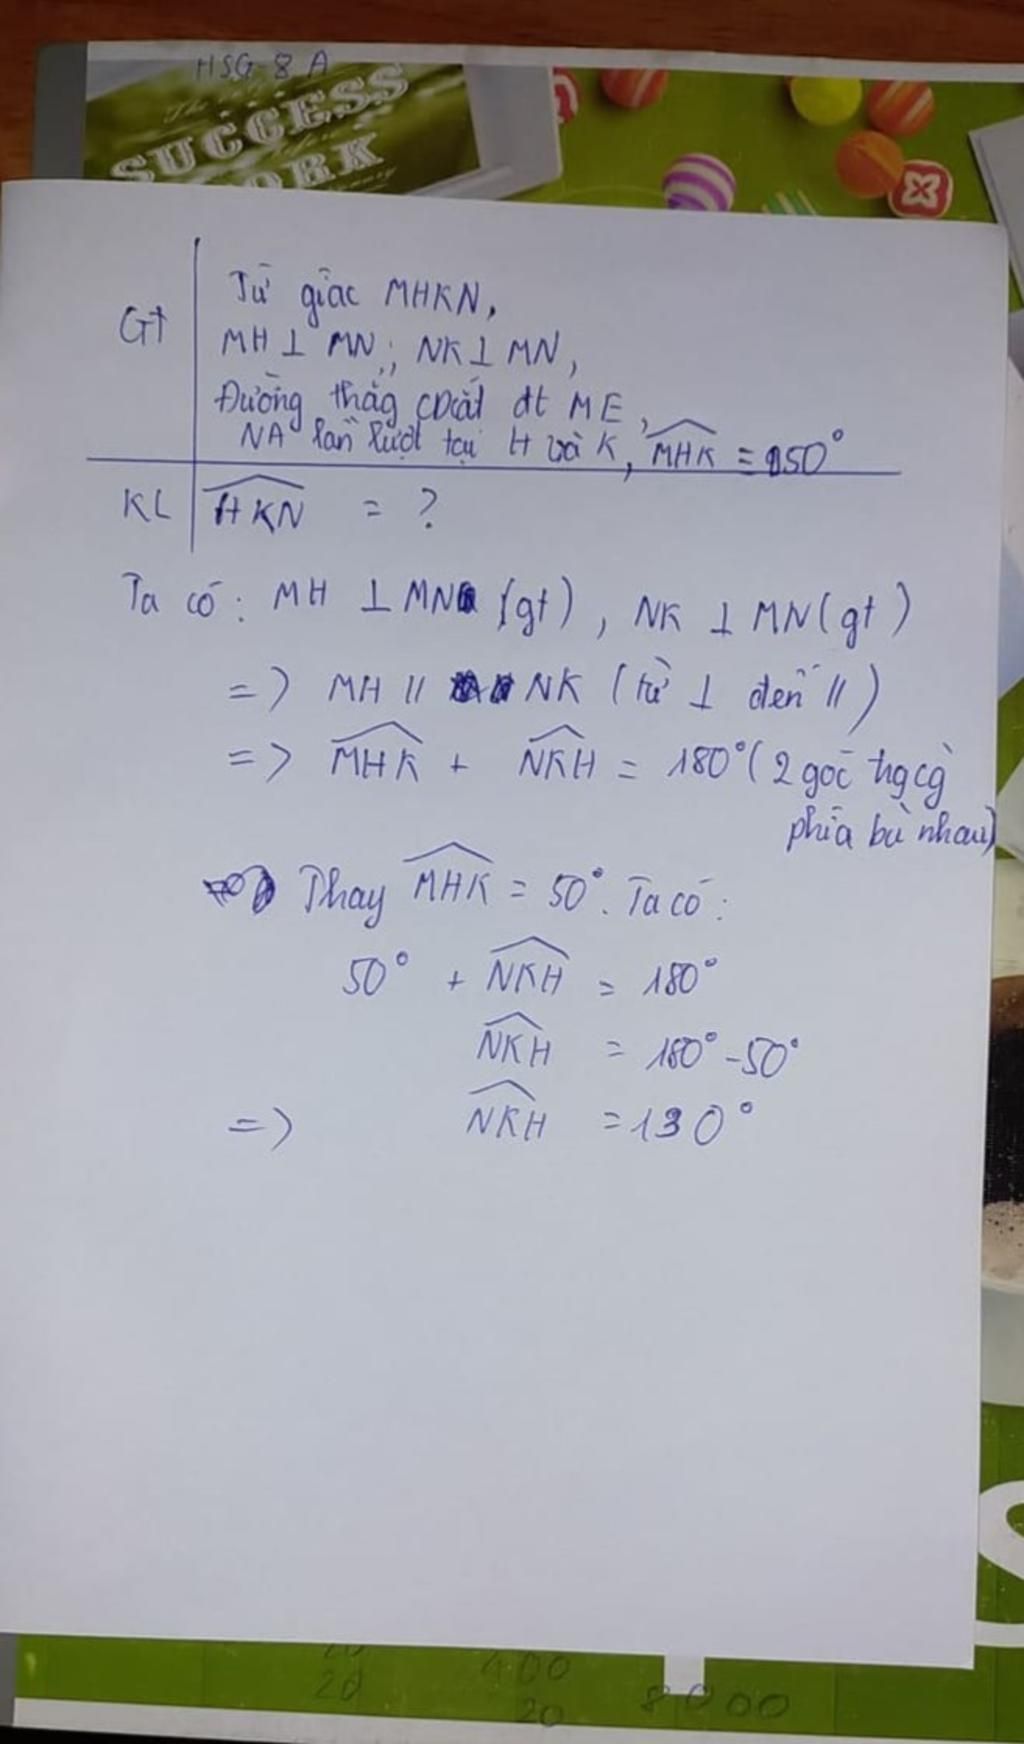 HSG-8A
SUCCESS
Gt
Tứ giác MHKN,
MH ⊥ MN; NK ⊥ MN,
Đường thẳg CD cắt đt ME,
NA lần lượt tại H và K, MHK = 50°
KL HKN = ?
Ta có: MH ⊥ MN (gt), NK ⊥ MN (gt)
=> MH // NK (từ ⊥ đến //)
=> MHK + NKH = 180° (2 góc tgcg
phía bù nhau)
Thay MHK = 50°. Ta có:
50° + NKH = 180°
NKH = 180° - 50°
=> NKH = 130°
20 400
20 8000